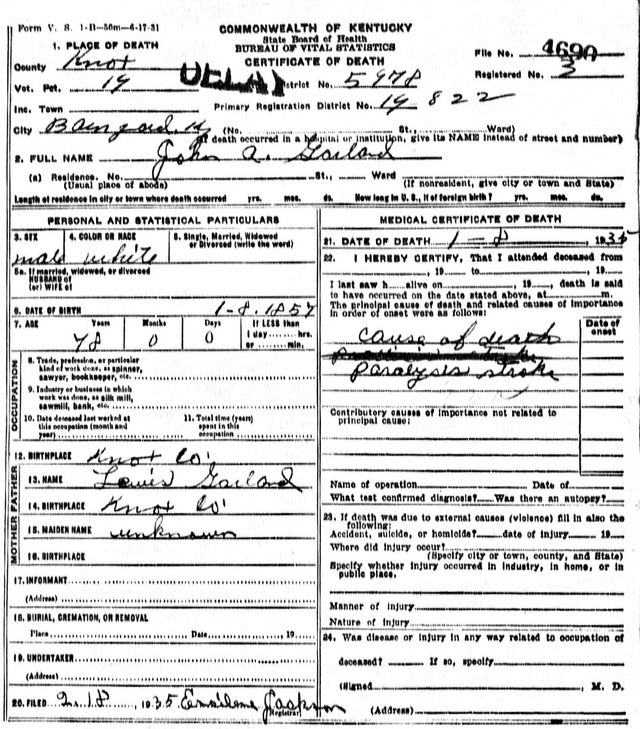 Form V. S. 1-B—50m—4-17-31
COMMONWEALTH OF KENTUCKY
State Board of Health
BUREAU OF VITAL STATISTICS
CERTIFICATE OF DEATH
File No. 4690
Registered No. 3
1. PLACE OF DEATH
County Knox
Vot. Pct. 19
District No. 5978
Inc. Town
Primary Registration District No. 19822
City (No. St., Ward)
(If death occurred in a hospital or institution, give its NAME instead of street and number)
2. FULL NAME John A. Gailard
(a) Residence. No. St., Ward
(Usual place of abode) (If nonresident, give city or town and State)
Length of residence in city or town where death occurred yrs. mos. ds. How long in U. S., if of foreign birth? yrs. mos. ds.
PERSONAL AND STATISTICAL PARTICULARS
3. SEX 4. COLOR OR RACE 5. Single, Married, Widowed or Divorced (write the word)
male white
5a. If married, widowed, or divorced
HUSBAND of
(or) WIFE of
6. DATE OF BIRTH 1-8-1857
7. AGE Years Months Days If LESS than
78 0 0 1 day hrs.
or min.
OCCUPATION
8. Trade, profession, or particular
kind of work done, as spinner,
sawyer, bookkeeper, etc.
9. Industry or business in which
work was done, as silk mill,
sawmill, bank, etc.
10. Date deceased last worked at
this occupation (month and
year)
11. Total time (years)
spent in this
occupation
12. BIRTHPLACE Knox Co.
FATHER
13. NAME Lewis Gailard
14. BIRTHPLACE Knox Co.
MOTHER
15. MAIDEN NAME unknown
16. BIRTHPLACE
17. INFORMANT
(Address)
18. BURIAL, CREMATION, OR REMOVAL
Place Date , 19
19. UNDERTAKER
(Address)
20. FILED 2-18, 1935 Jackson
Registrar
MEDICAL CERTIFICATE OF DEATH
21. DATE OF DEATH 1-8 1935
22. I HEREBY CERTIFY, That I attended deceased from
, 19 to , 19
I last saw h alive on , 19 , death is said
to have occurred on the date stated above, at m.
The principal cause of death and related causes of importance
in order of onset were as follows:
Date of onset
cause of death
paralysis stroke
Contributory causes of importance not related to
principal cause:
Name of operation Date of
What test confirmed diagnosis? Was there an autopsy?
23. If death was due to external causes (violence) fill in also the
following:
Accident, suicide, or homicide? date of injury 19
Where did injury occur?
(Specify city or town, county, and State)
Specify whether injury occurred in industry, in home, or in
public place.
Manner of injury
Nature of injury
24. Was disease or injury in any way related to occupation of
deceased? If so, specify
(Signed , M. D.
(Address)